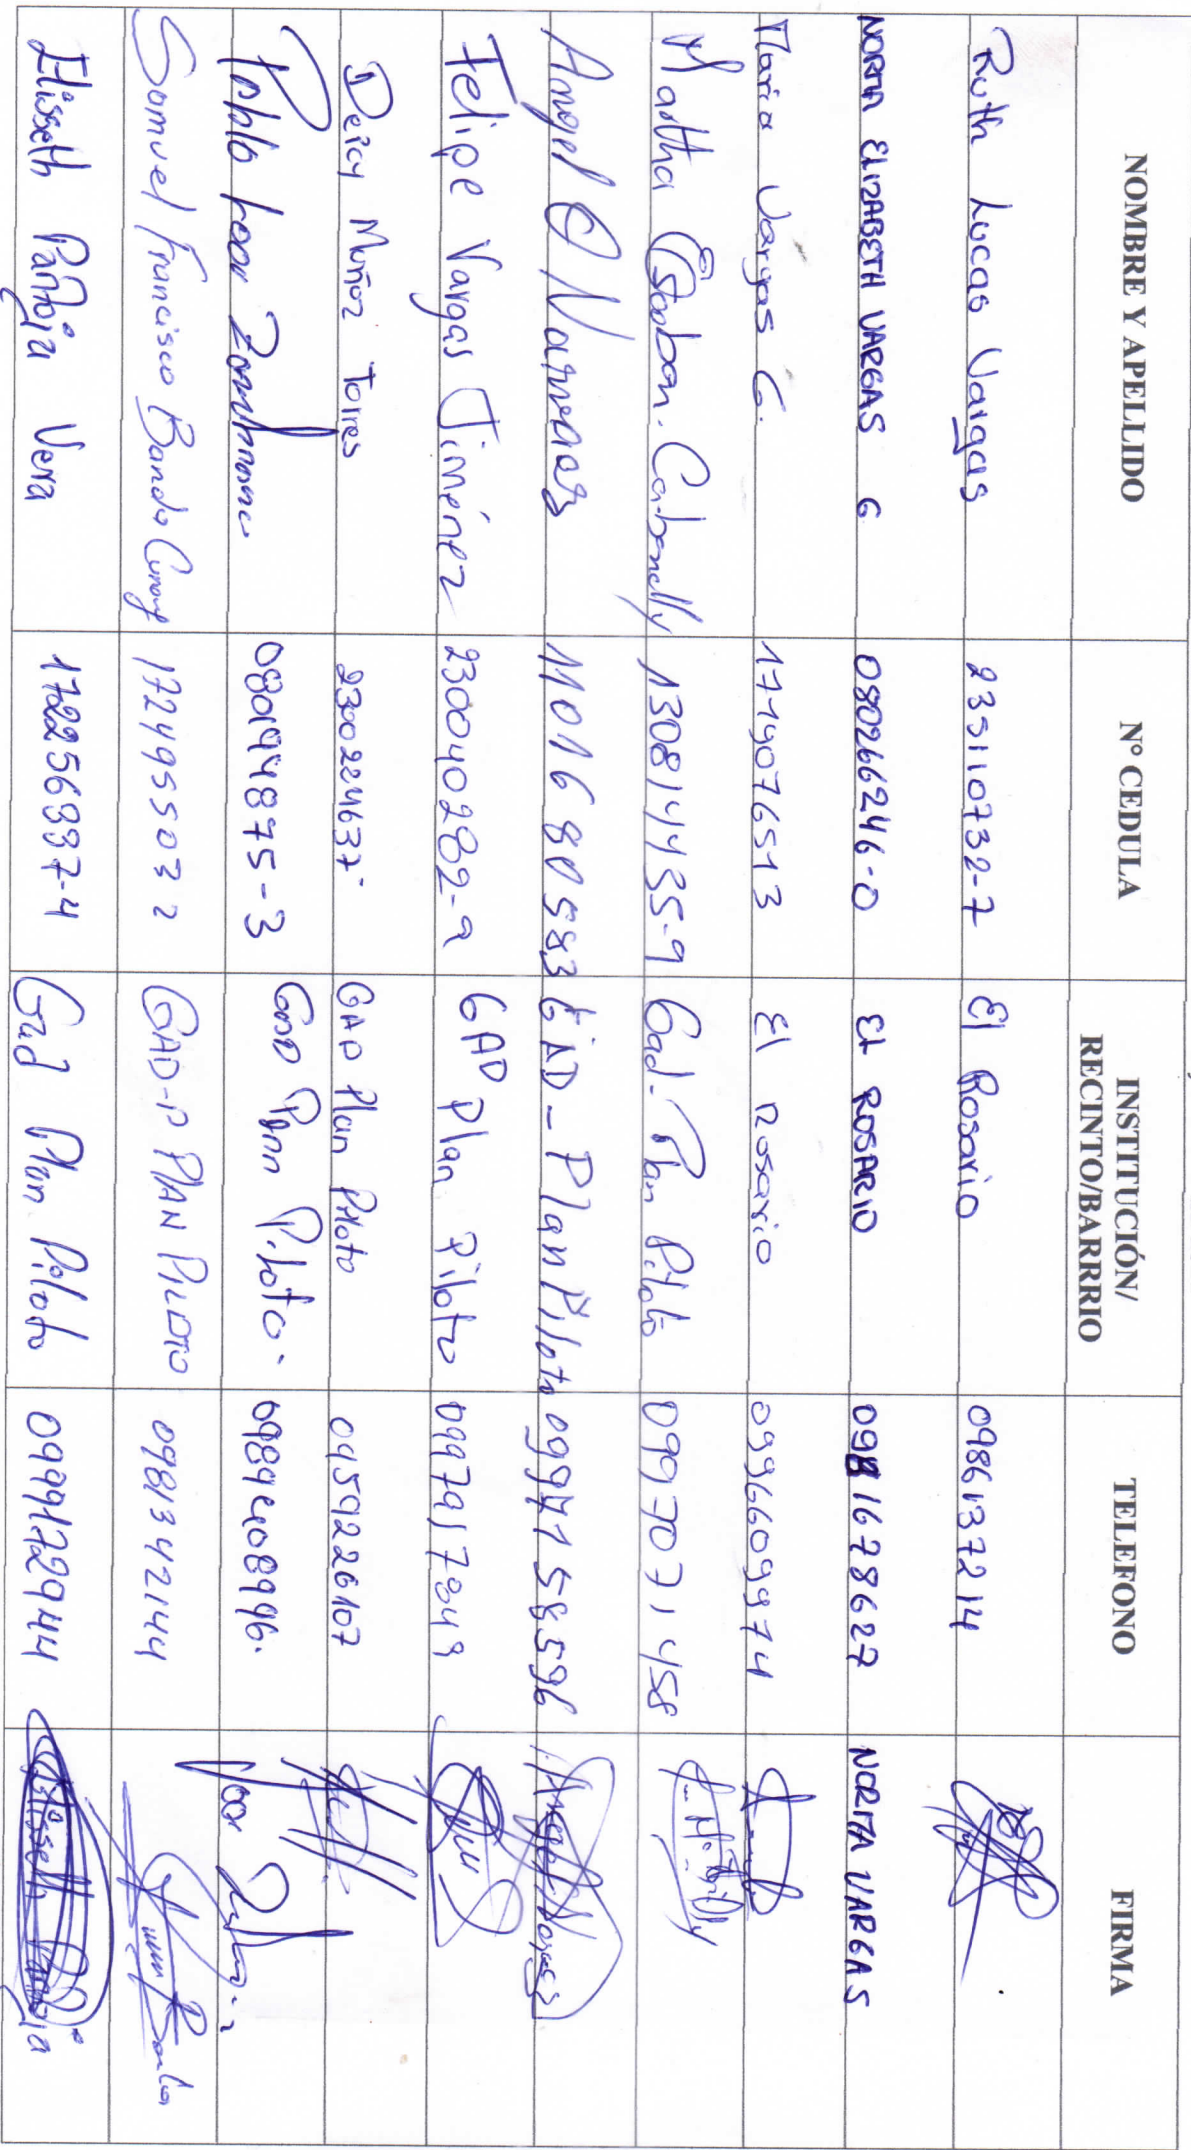 NOMBRE Y APELLIDO Nº CEDULA INSTITUCIÓN/ RECINTO/BARRRIO TELEFONO FIRMA
Ruth Lucas Vargas 235110732-7 El Rosario 0986137214
NORMA ELIZABETH VARGAS G 080266246-0 El ROSARIO 0981678627 NORMA VARGAS
Maria Vargas G. 1719076513 El Rosario 0996609974
Martha 130814435-9 Gad-Plan Piloto 0997071458
Angel O Narvaez 1101680583 GAD-Plan Piloto 0994158596
Felipe Vargas Jiménez 230040282-9 GAD Plan Piloto
Deicy Muñoz Torres 2300224637 GAD Plan Piloto 0959226107
Pablo Loor Zambrano 080194875-3 GAD Plan Piloto. 0989408996.
Samuel Francisco 1724955032 GAD-P PLAN PILOTO 0981342144
Elisseth Pantoja Vera 172256337-4 Gad Plan Piloto 0999172944 Elisseth Pantoja